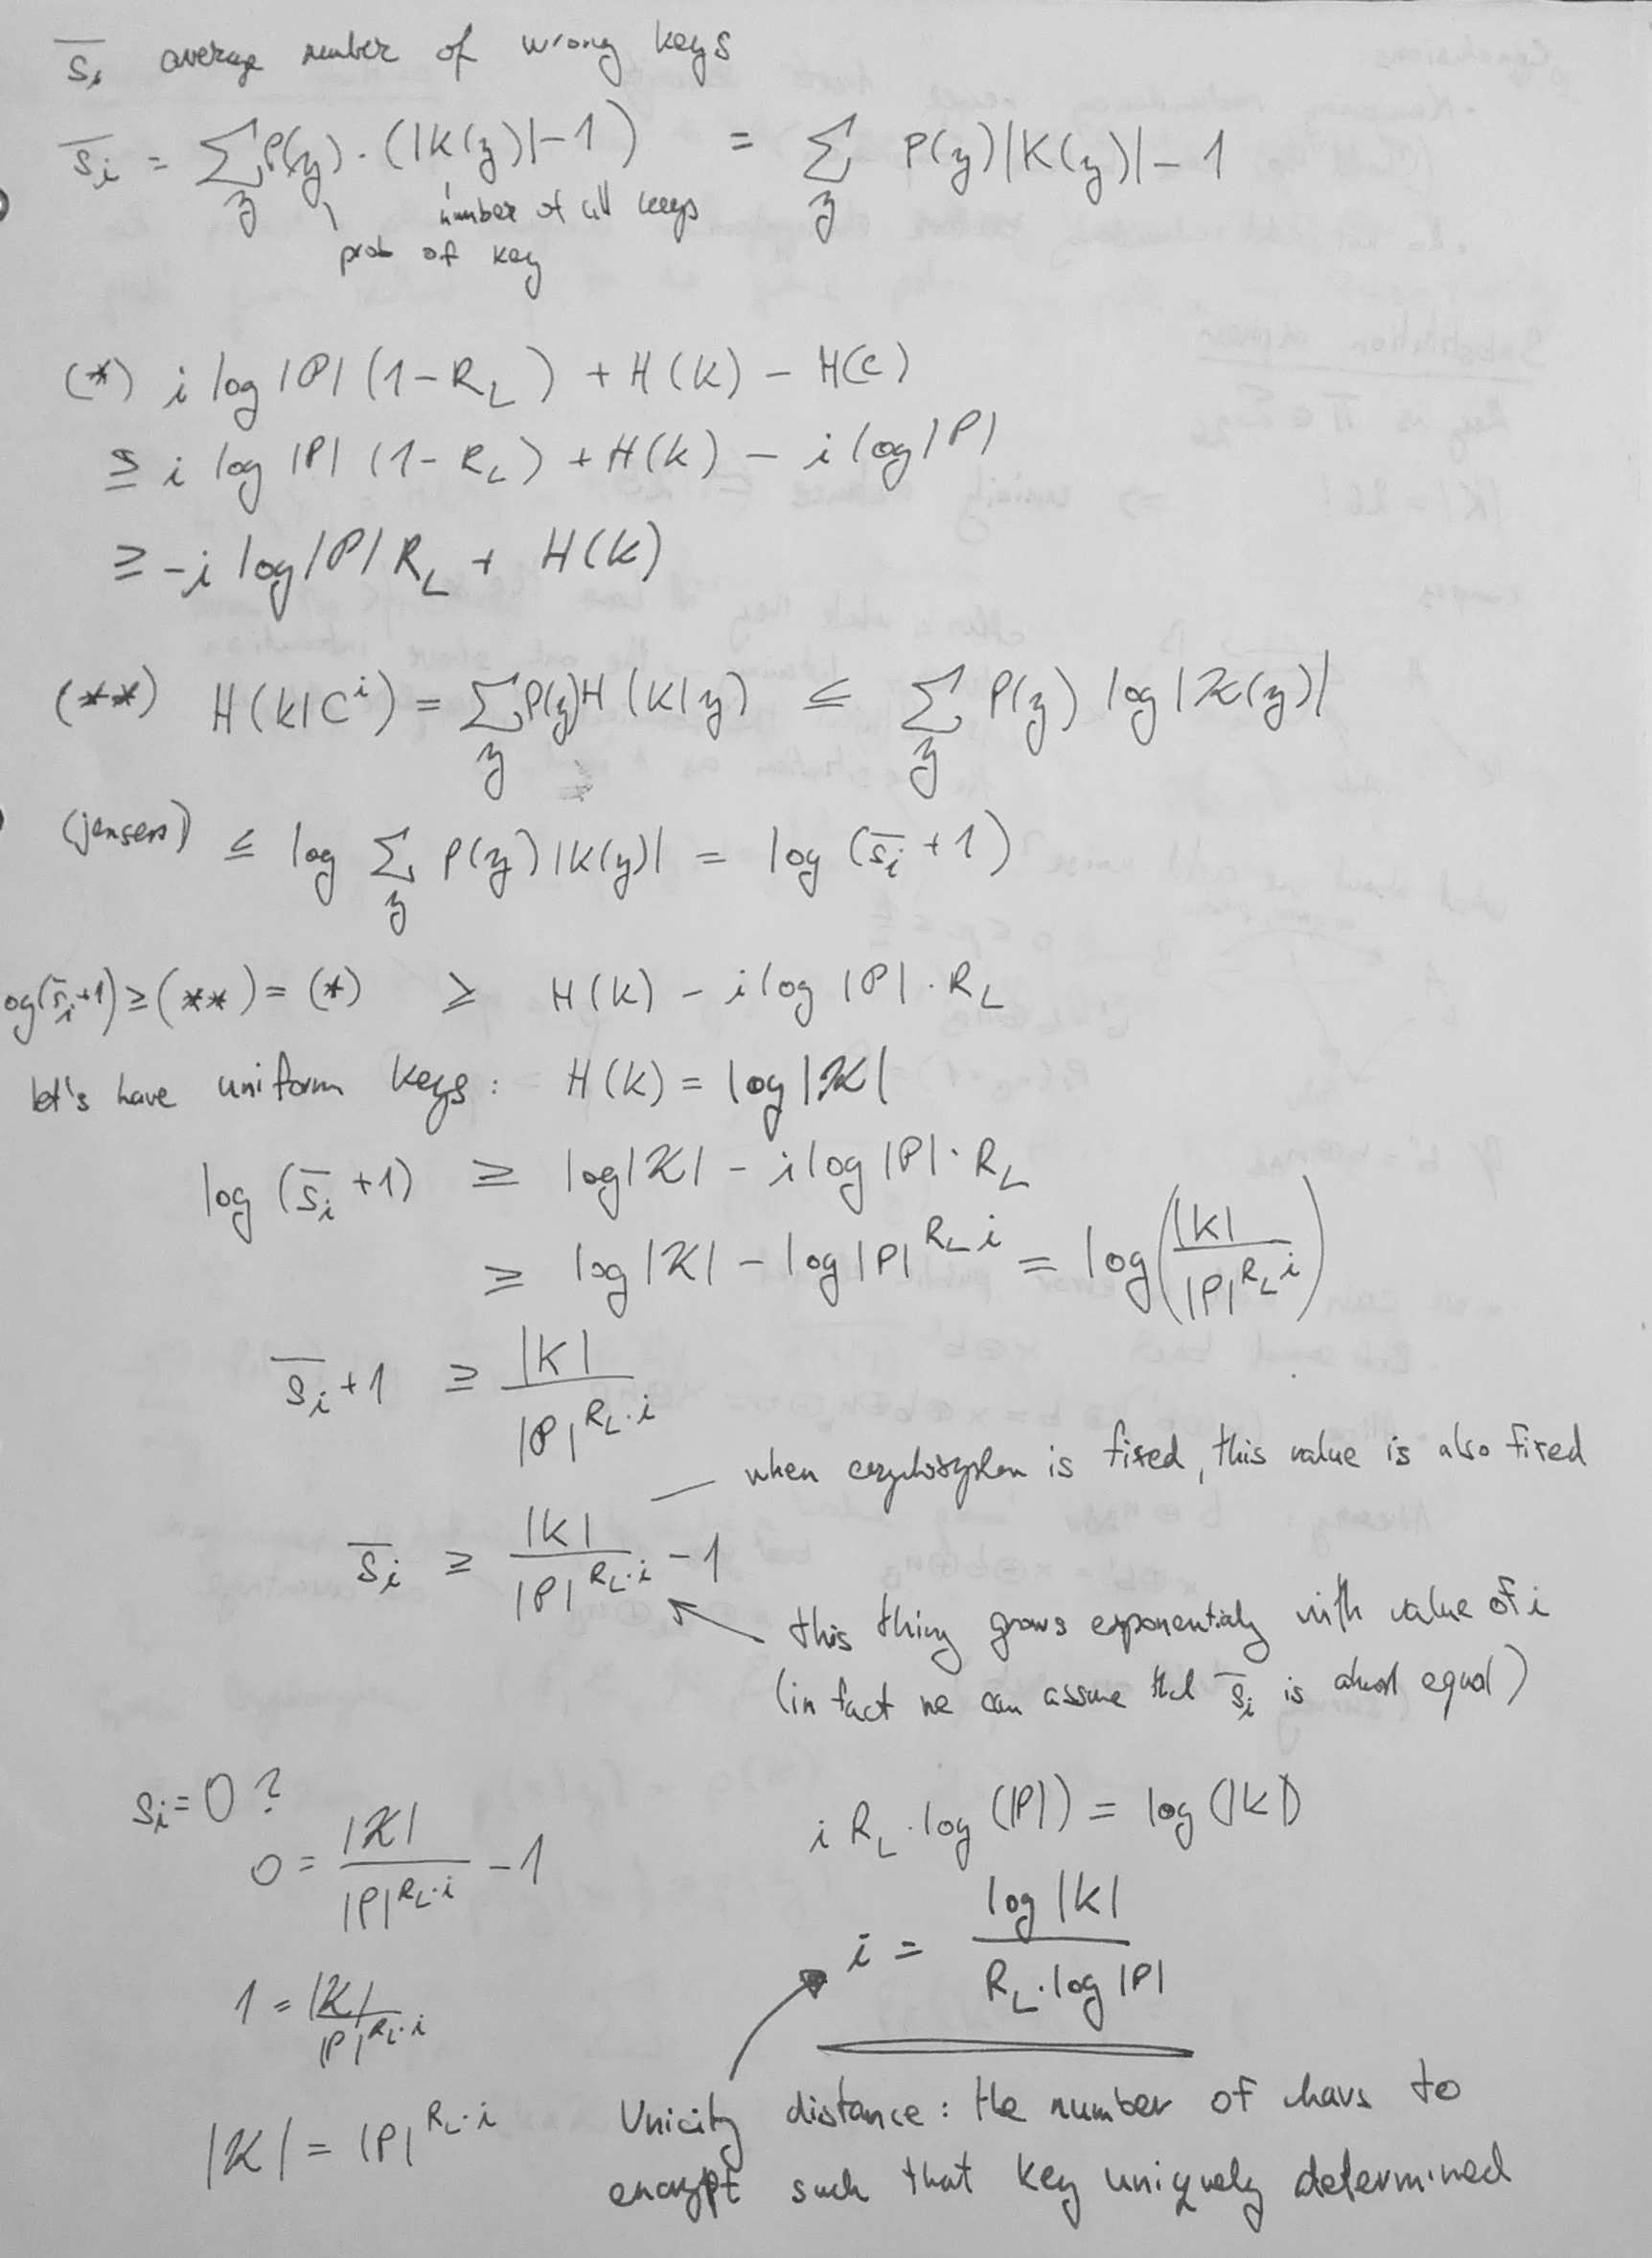 s̄ᵢ average number of wrong keys
s̄ᵢ = ∑_y P(y) · (|K(y)| - 1) = ∑_y P(y)|K(y)| - 1
number of all keys
prob of key
(*) i log |P| (1 - R_L) + H(K) - H(C)
≥ i log |P| (1 - R_L) + H(K) - i log |P|
≥ -i log |P| R_L + H(K)
(**) H(K|Cⁱ) = ∑_y P(y) H(K|y) ≤ ∑_y P(y) log |K(y)|
(jensens) ≤ log ∑_y P(y) |K(y)| = log (s̄ᵢ + 1)
og(s̄ᵢ+1) ≥ (**) = (*) ≥ H(K) - i log |P| · R_L
let's have uniform keys: H(K) = log |K|
log (s̄ᵢ + 1) ≥ log |K| - i log |P| · R_L
≥ log |K| - log |P|^{R_L i} = log (|K| / |P|^{R_L i})
s̄ᵢ + 1 ≥ |K| / |P|^{R_L · i}
when cryptosystem is fixed, this value is also fixed
s̄ᵢ ≥ |K| / |P|^{R_L · i} - 1
this thing grows exponentialy with value of i
(in fact we can assume that s̄ᵢ is almost equal)
sᵢ = 0 ?
0 = |K| / |P|^{R_L · i} - 1
1 = |K| / |P|^{R_L · i}
|K| = |P|^{R_L · i}
i R_L · log (|P|) = log (|K|)
i = log |K| / R_L · log |P|
Unicity distance: the number of chars to
encrypt such that key uniquely determined